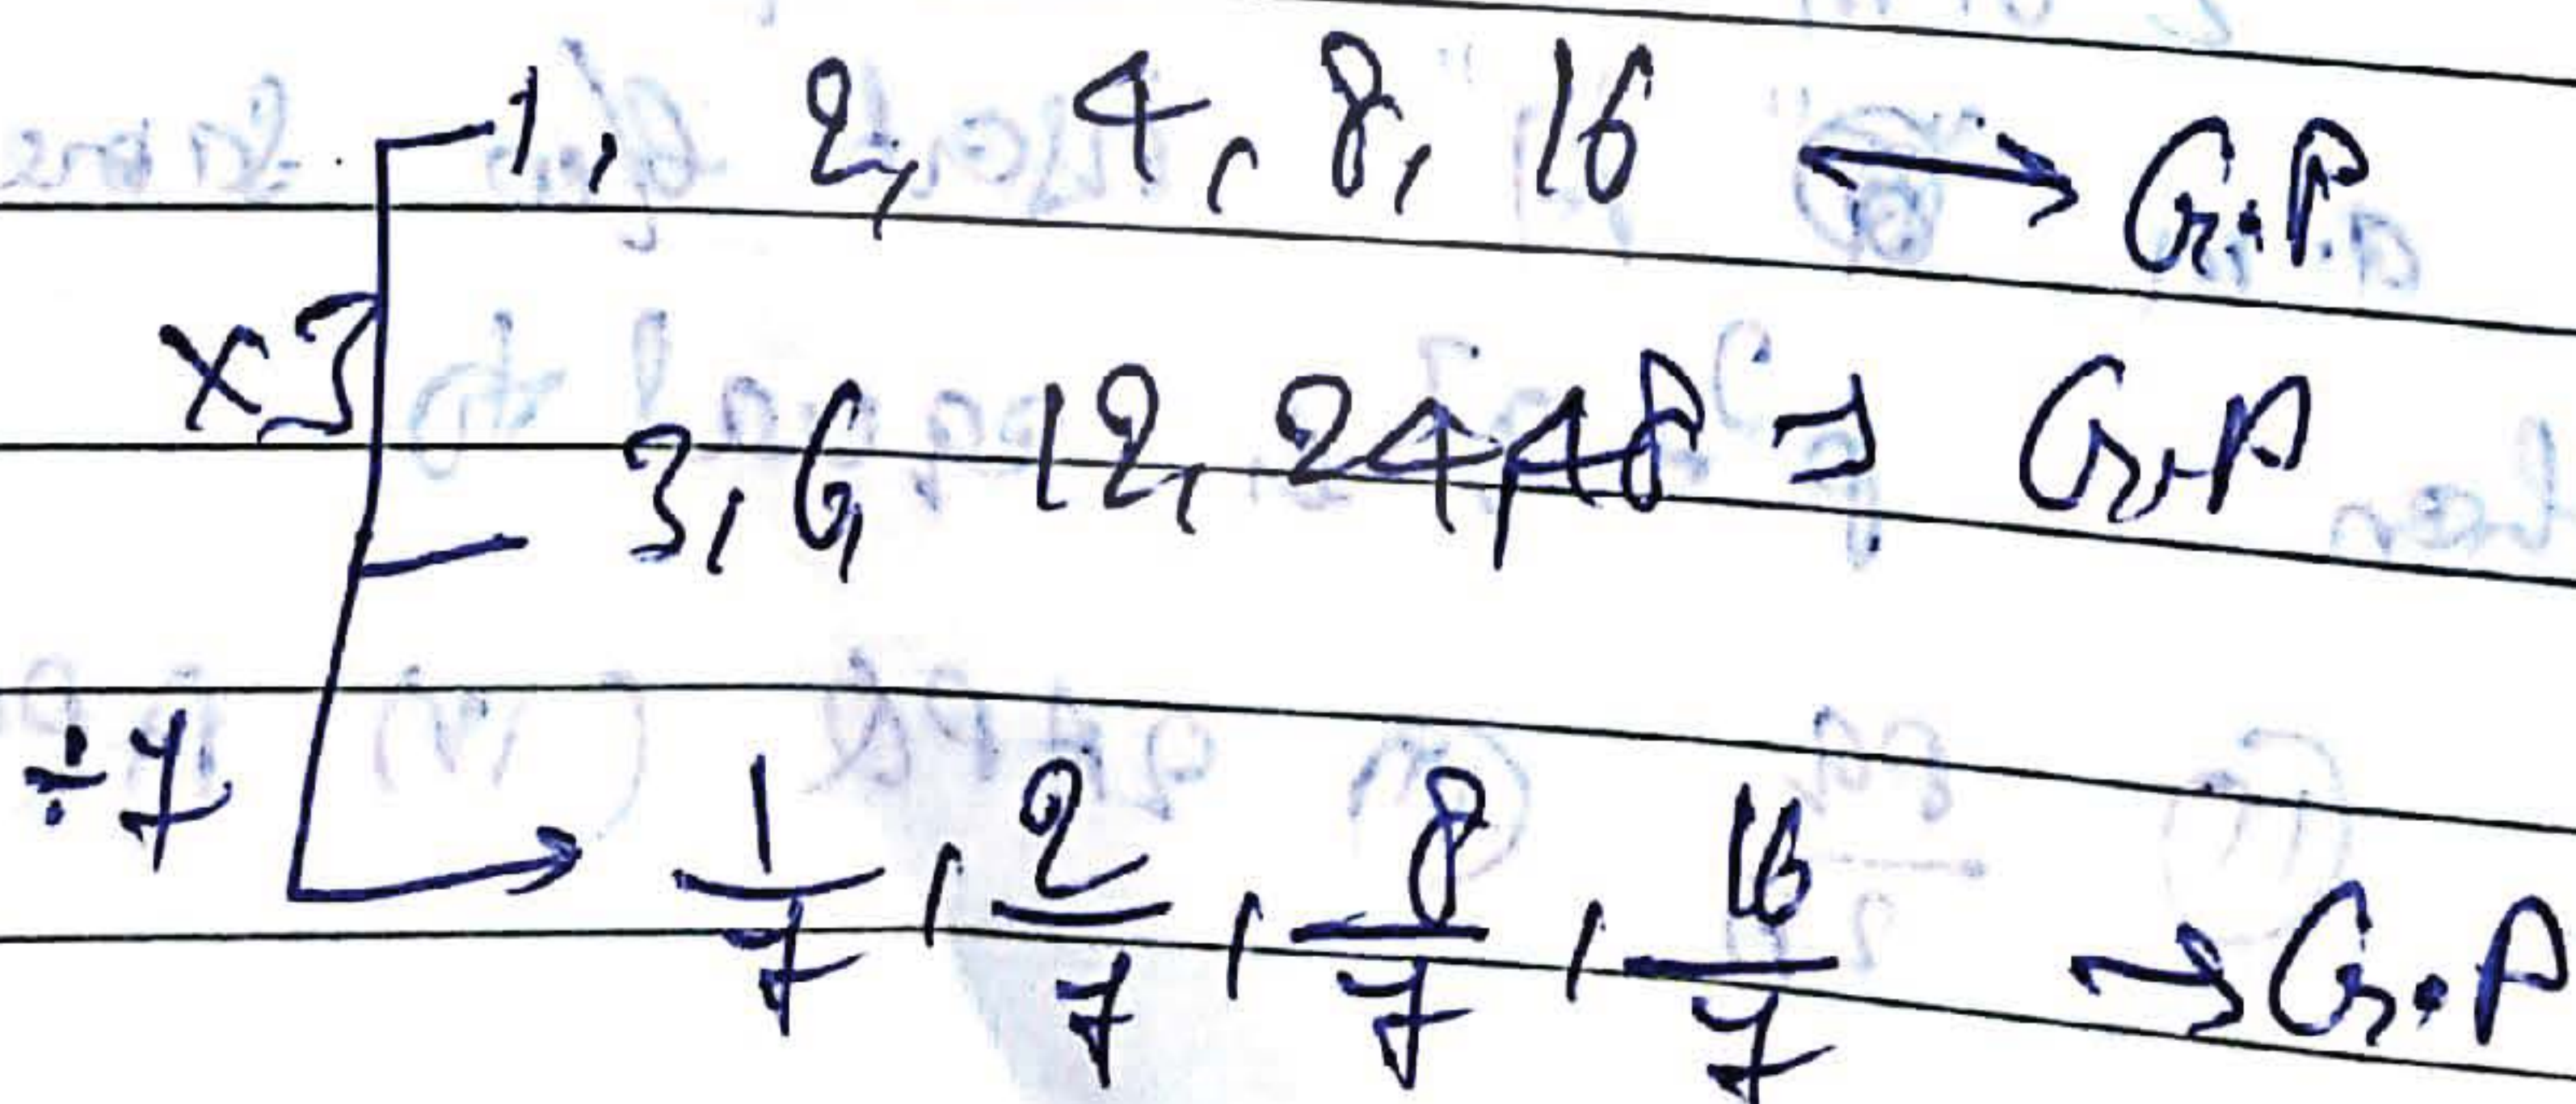 1, 2, 4, 8, 16 ↔ G.P.
×3
3, 6, 12, 24, 48 → G.P
÷7
→ 1/7, 2/7, 8/7, 16/7 → G.P